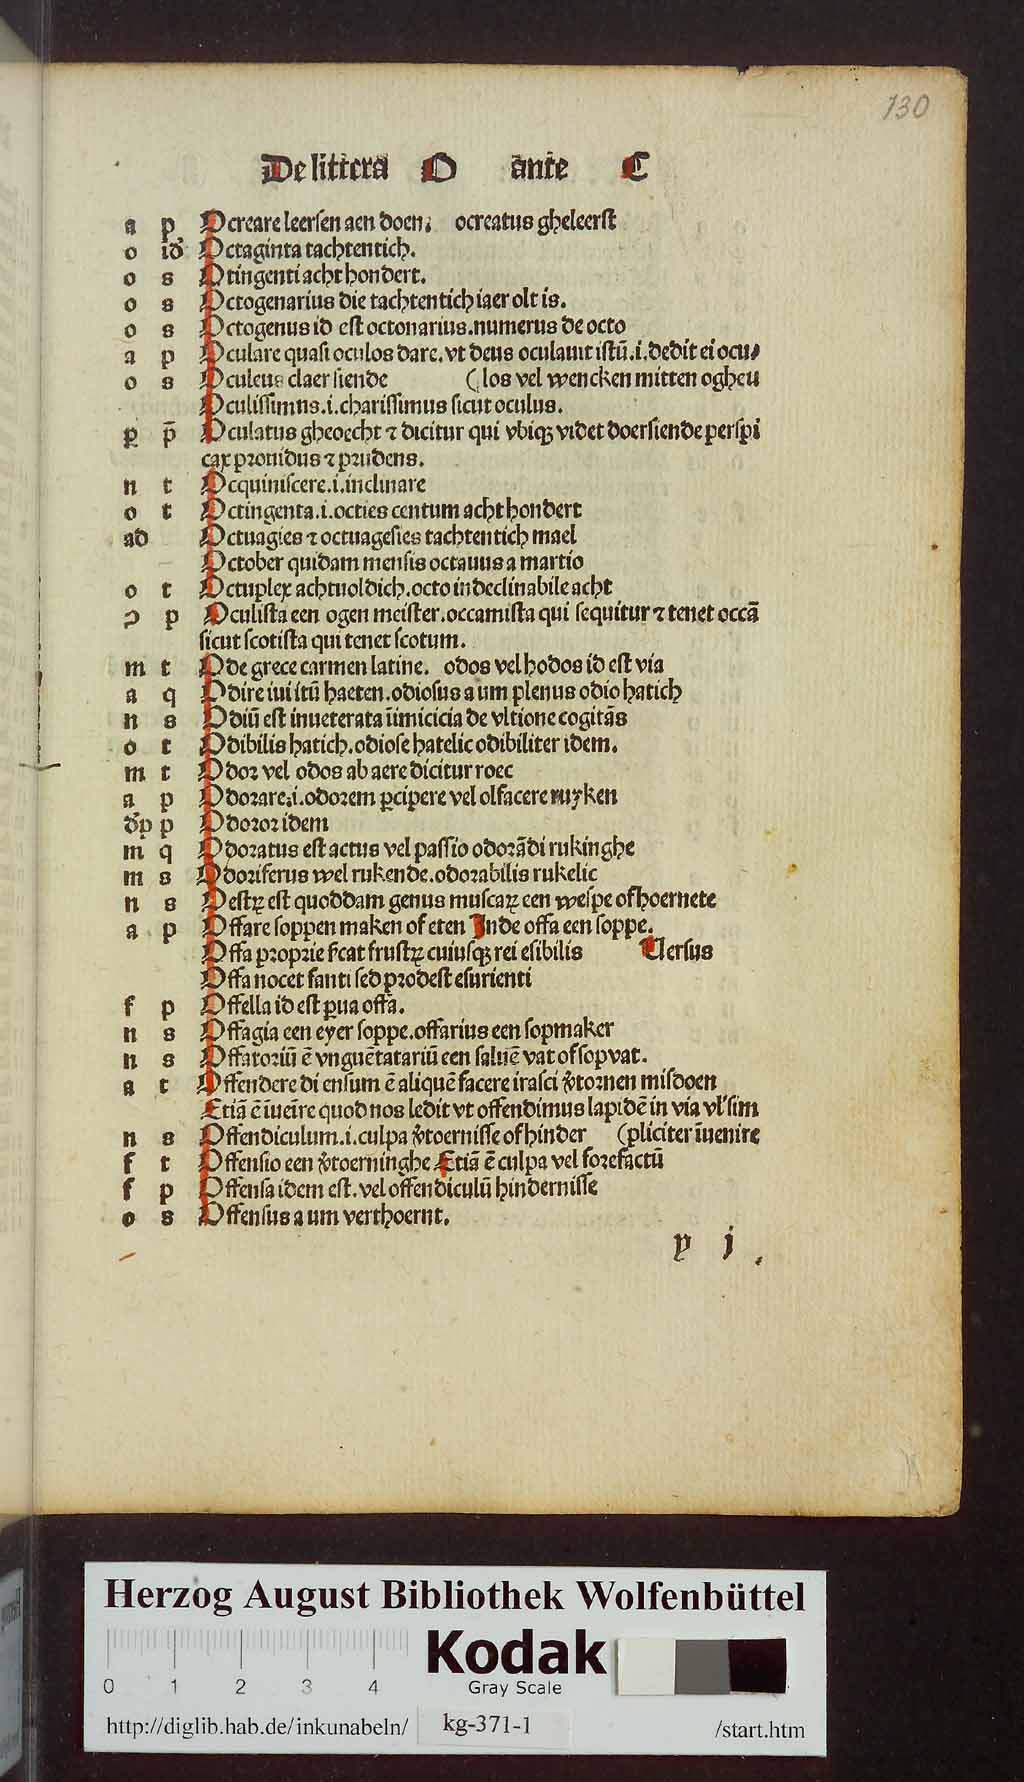 130
De littera O ante C
a p Ocreare leersen aen doen. ocreatus gheleerst
o id Octaginta tachtentich.
o s Otingenti acht hondert.
o s Octogenarius die tachtentich iaer olt is.
o s Octogenus id est octonarius.numerus de octo
a p Oculare quasi oculos dare.vt deus oculauit istū.i.dedit ei ocu⸗
o s Oculeus claer siende (los vel wencken mitten ogheu
Oculissimus.i.charissimus sicut oculus.
ꝑ p̄ Oculatus gheoecht ⁊ dicitur qui vbiqꝫ videt doersiende perspi
cax prouidus ⁊ prudens.
n t Ocquiniscere.i.inclinare
o t Octingenta.i.octies centum acht hondert
ad Octuagies ⁊ octuagesies tachtentich mael
October quidam mensis octauus a martio
o t Octuplex achtuoldich.octo indeclinabile acht
ꝯ p Oculista een ogen meister.occamista qui sequitur ⁊ tenet occā
sicut scotista qui tenet scotum.
m t Ode grece carmen latine. odos vel hodos id est via
a q Odire iui itū haeten.odiosus a um plenus odio hatich
n s Odiū est inueterata īimicicia de vltione cogitās
o t Odibilis hatich.odiose hatelic odibiliter idem.
m t Odor vel odos ab aere dicitur roec
a p Odorare.i.odorem ꝑcipere vel olfacere ruyken
d̉p p Odoror idem
m q Odoratus est actus vel passio odorādi rukinghe
m s Odoriferus wel rukende.odorabilis rukelic
n s Oestꝝ est quoddam genus muscaꝝ een wespe of hoernete
a p Offare soppen maken of eten Inde offa een soppe.
Offa proprie fcat frustꝝ cuiusqꝫ rei esibilis Uersus
Offa nocet fanti sed prodest esurienti
f p Offella id est ꝑua offa.
n s Offagia een eyer soppe.offarius een sopmaker
n s Offatoriū ē vnguētatariū een saluē vat of sopvat.
a t Offendere di ensum ē aliquē facere irasci v̉tornen misdoen
Etiā ē īueīre quod nos ledit vt offendimus lapidē in via vl' sim
n s Offendiculum.i.culpa v̉toernisse of hinder (pliciter īuenire
f t Offensio een v̉toerninghe Etiā ē culpa vel forefactū
f p Offensa idem est.vel offendiculū hindernisse
o s Offensus a um verthoernt.
y j.
Herzog August Bibliothek Wolfenbüttel
Kodak
Gray Scale
0 1 2 3 4
http://diglib.hab.de/inkunabeln/ kg-371-1 /start.htm